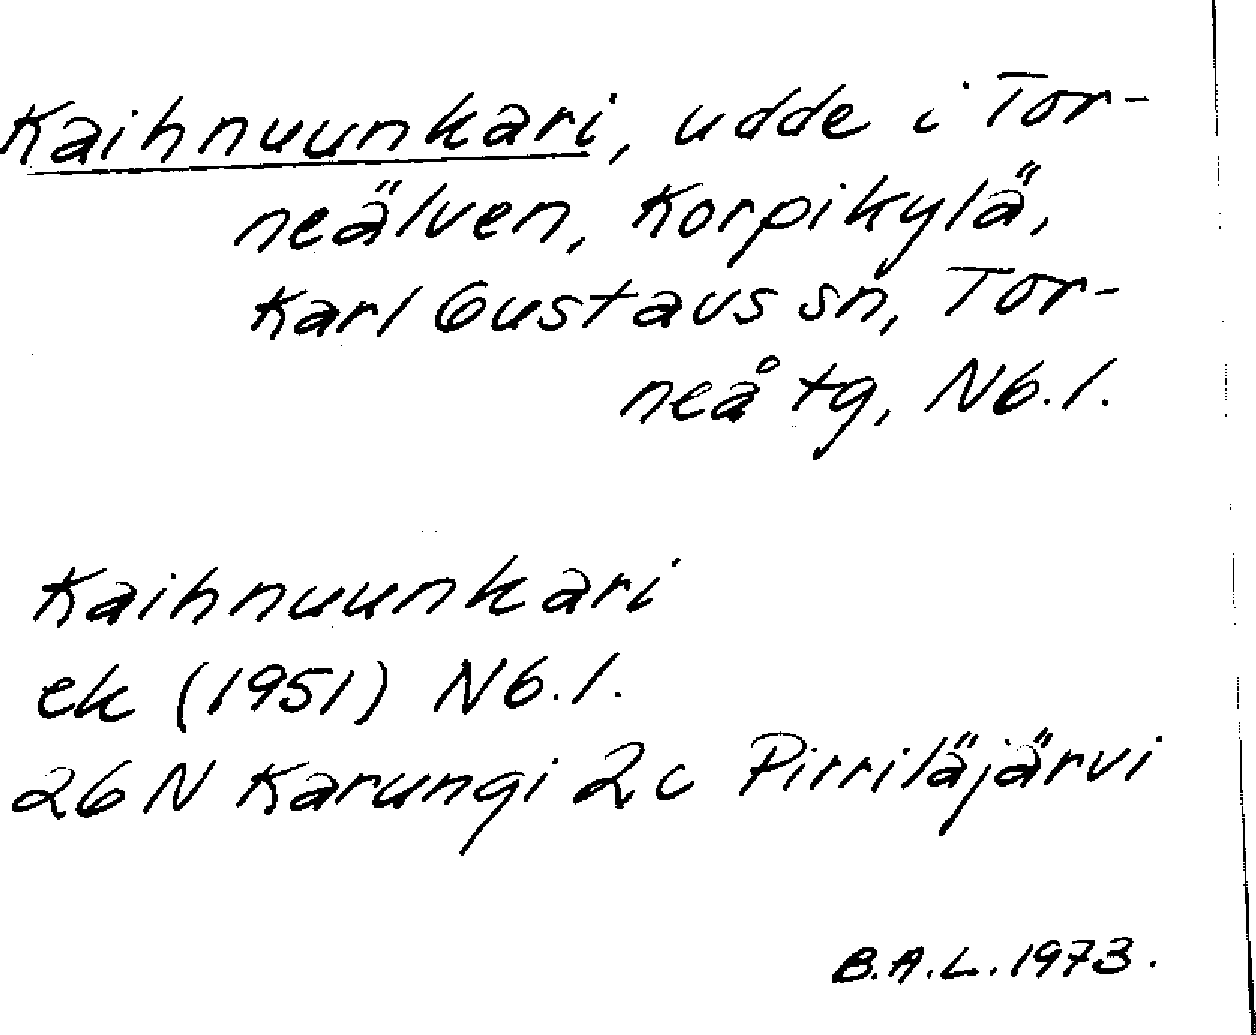 Kaihnuunkari, udde i Tor-
neälven, Korpikylä,
Karl Gustavs sn, Tor-
neå tg, Nb. l.
Kaihnuunkari
ek (1951) Nb. l.
26 N Karungi 2c Pirriläjärvi
B.A.L. 1973.